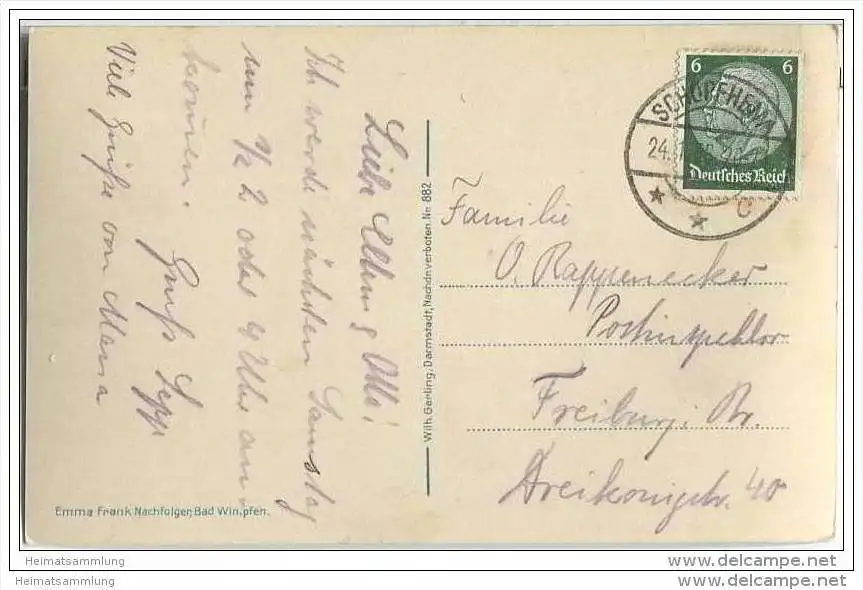 Liebe Eltern &
Ich werde nächsten Samstag
um 1/2 2 oder 4 Uhr an-
kommen. Gruß Sepp
Viele Grüße von Mama
Wilh. Gerling, Darmstadt, Nachdr. verboten. Nr. 882
Emma Frank Nachfolger, Bad Wimpfen.
6 6
Deutsches Reich
SCHOPFHEIM
24.
C
Familie
O. Rappenecker
Postinspektor
Freiburg i. Br.
Dreikönigstr. 40
Heimatsammlung
Heimatsammlung
www.delcampe.net
www.delcampe.net